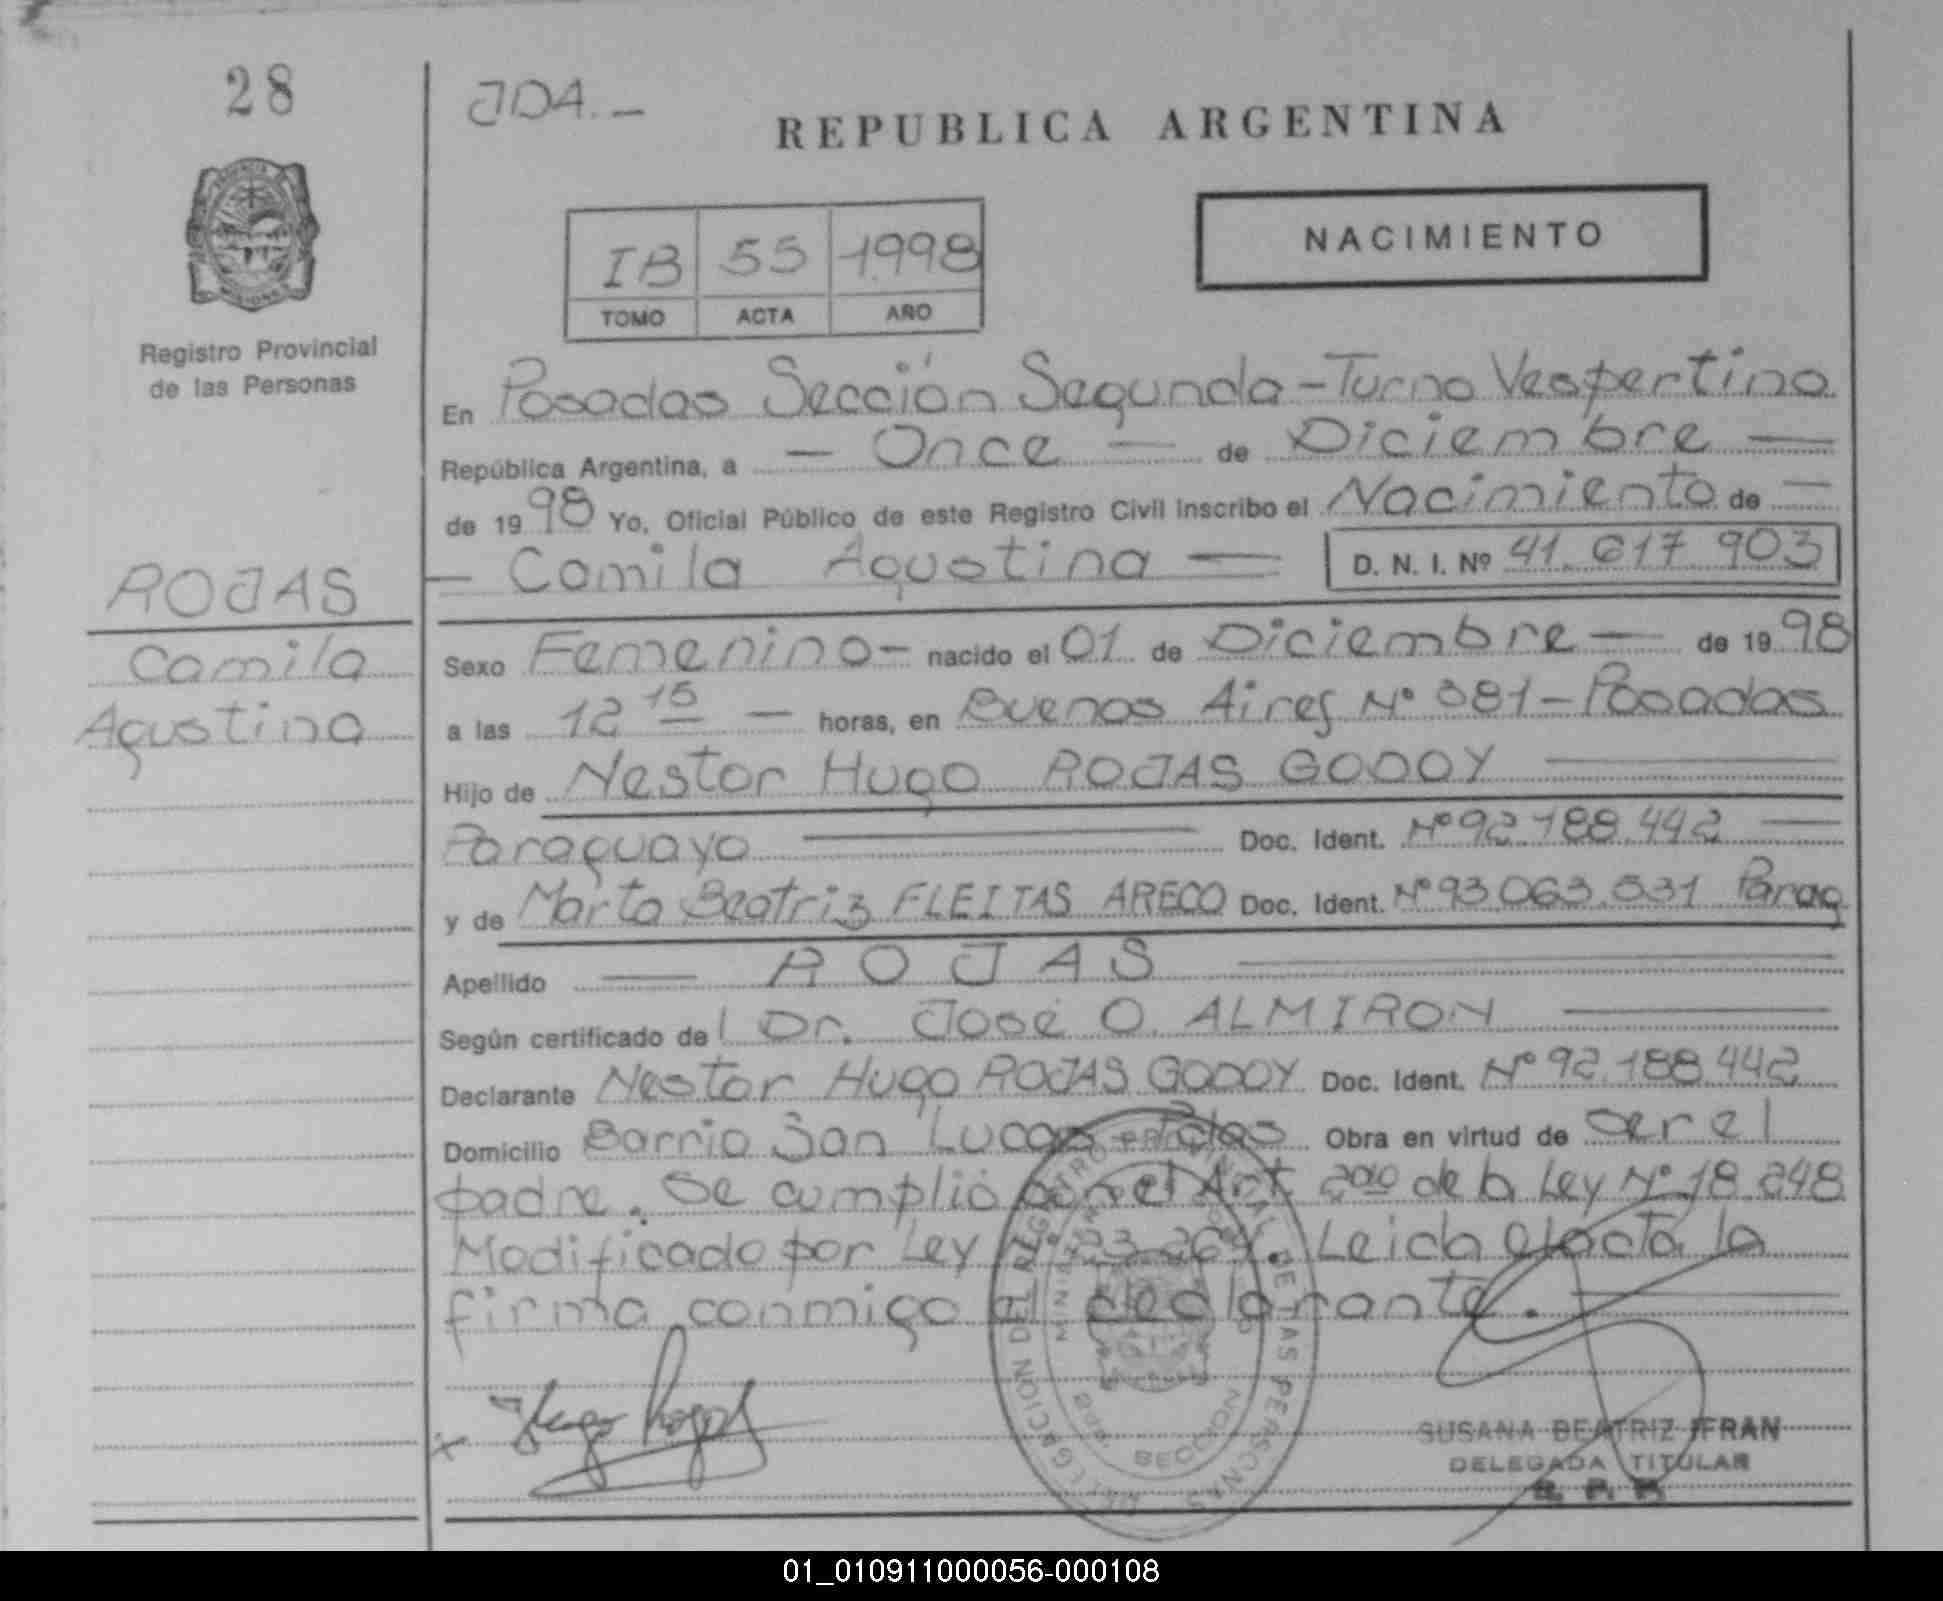 28
JDA.-
REPUBLICA ARGENTINA
NACIMIENTO
IB 55 1998
TOMO ACTA AÑO
Registro Provincial
de las Personas
En Posadas Sección Segunda - Turno Vespertino
República Argentina, a - Once - de Diciembre -
de 1998 Yo, Oficial Público de este Registro Civil inscribo el Nacimiento de -
- Camila Agustina - D. N. I. Nº 41.617.903
ROJAS
Camila
Agustina
Sexo Femenino - nacido el 01 de Diciembre - de 1998
a las 12 15 - horas, en Buenos Aires Nº 381 - Posadas
Hijo de Nestor Hugo ROJAS GODOY
Paraguayo Doc. Ident. Nº 92.188.442
y de Marta Beatriz FLEITAS ARECO Doc. Ident. Nº 93.063.531 Parag
Apellido - ROJAS
Según certificado del Dr. José O. ALMIRON
Declarante Nestor Hugo ROJAS GODOY Doc. Ident. Nº 92.188.442
Domicilio Barrio San Lucas - Pdas Obra en virtud de ser el
padre. Se cumplió con el Art. 2do de la Ley Nº 18.248
Modificado por Ley Nº 23.264. Leida el acta la
firma conmigo el declarante.
Hugo Rojas
DELEGACION DEL REGISTRO PROVINCIAL DE LAS PERSONAS
SECCION
SUSANA BEATRIZ IFRAN
DELEGADA TITULAR
R. P. P.
01_010911000056-000108